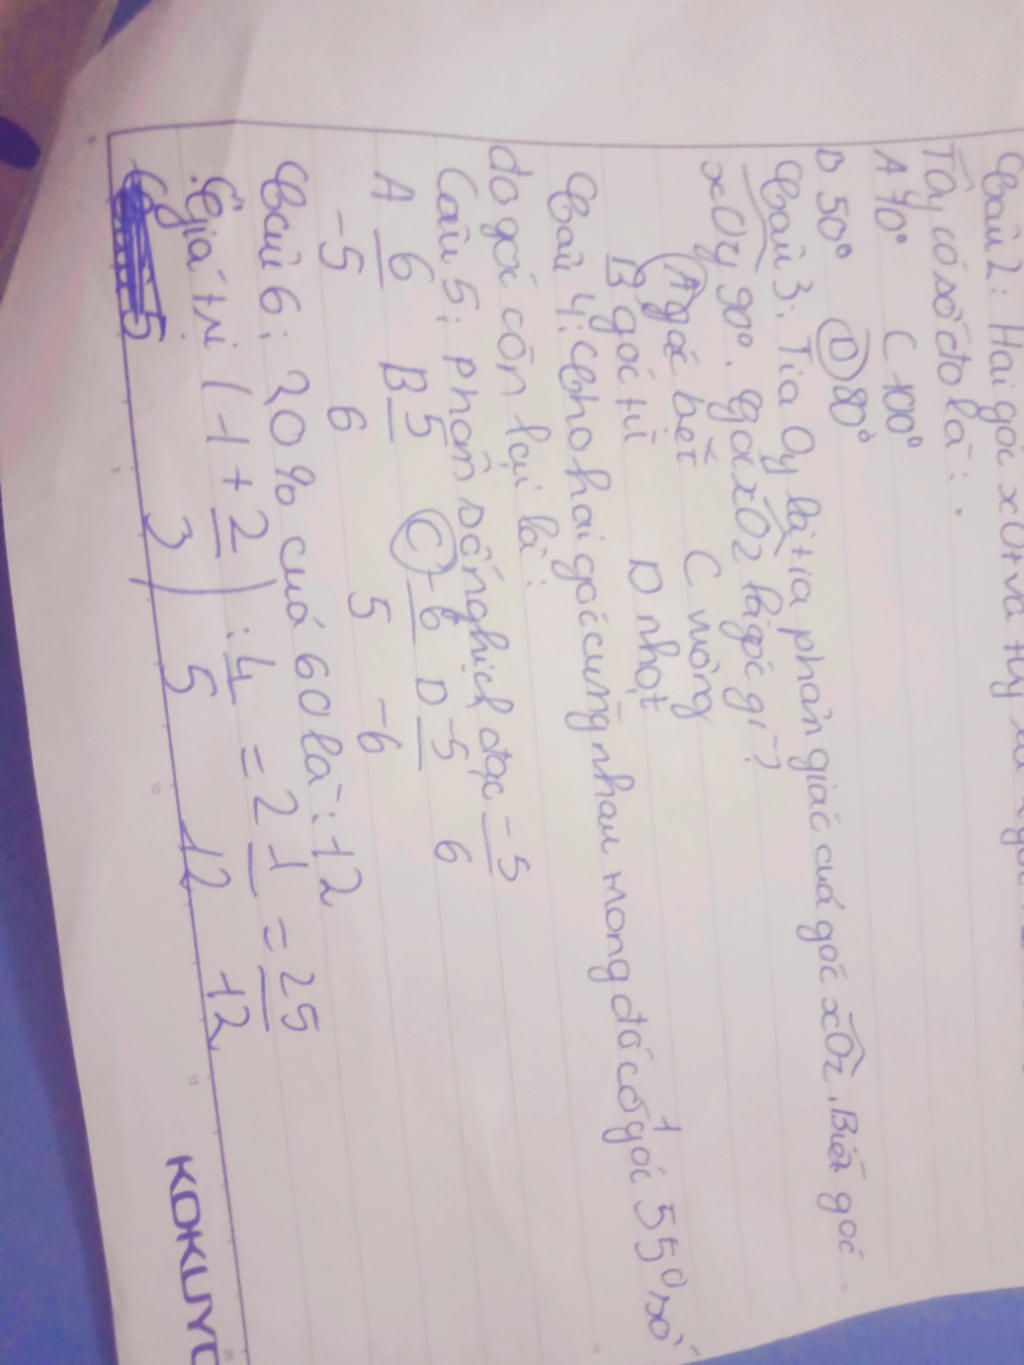 Câu 2: Hai góc xOt và tOy là
Tây có số đo là:
A 70° C 100°
B 50° D 80°
Câu 3: Tia Oy là tia phân giác cuả góc xOz. Biết góc
xOy 90°. Góc xOz là góc gì?
A góc bẹt C vuông
B góc tù D nhọt
Câu 4: Cho hai góc cùng nhau trong đó có 1 góc 55° số
đo góc còn lại là:
Câu 5: phân số nghịch đạc -5
A 6 B 5 C -6 D -5 6
-5 6 5 -6
Câu 6: 20% cuả 60 là: 12
Giá trị (1 + 2 ) : 4 = 2 1 = 25
3 5 12 12
KOKUYO